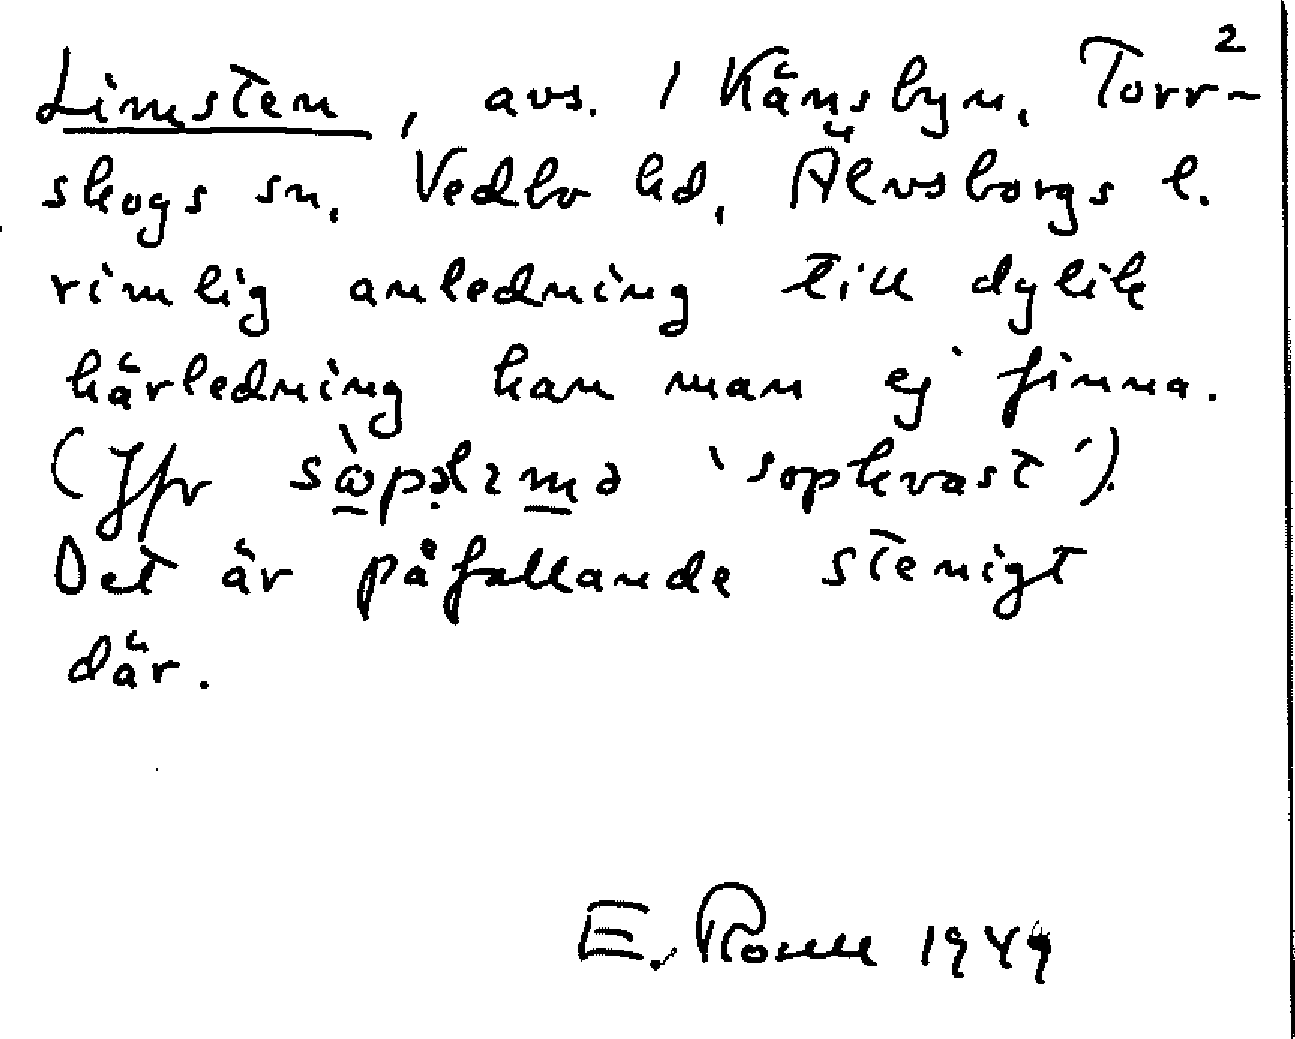 2
Limsten, avs. / Känsbyn, Torr-
skogs sn, Vedbo hd, Älvsborgs l.
rimlig anledning till dylik
härledning kan man ej finna.
(Jfr 'sopkvast').
Det är påfallande stenigt
där.
E. 1949